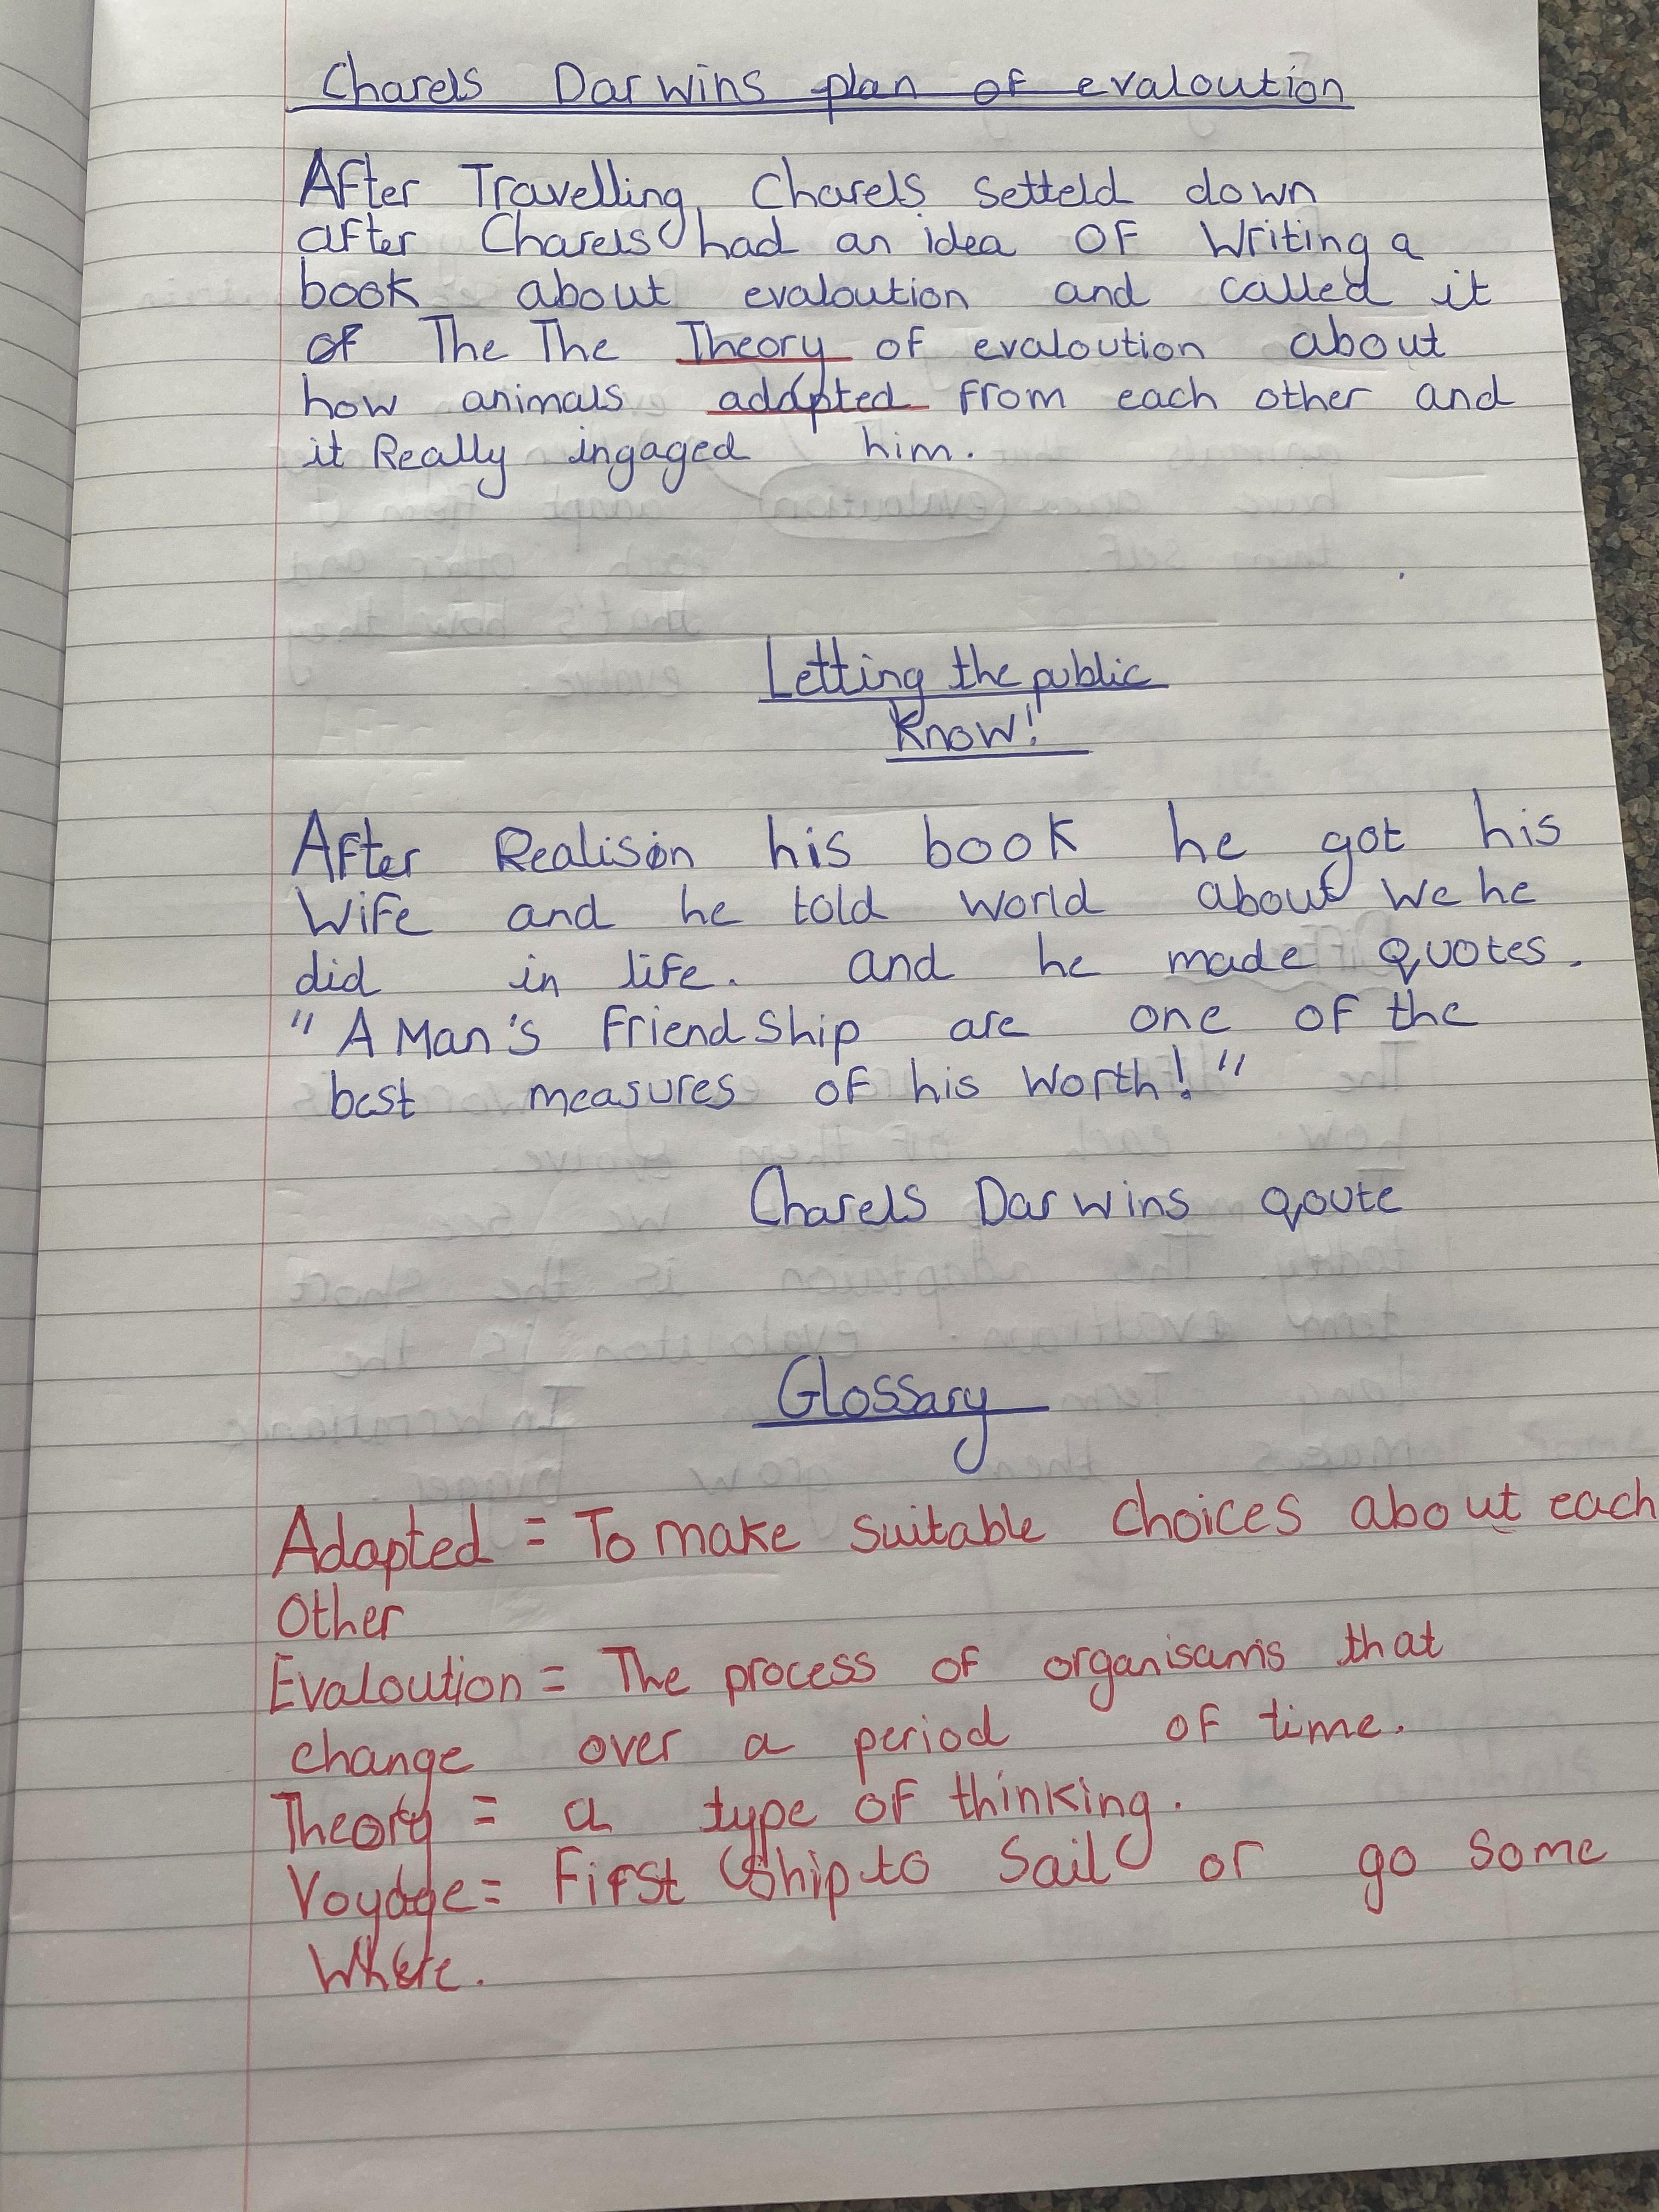 Charels Darwins plan of evaloution
After Travelling, Charels setteld down
after Charels had an idea of Writing a
book about evaloution and called it
of The The Theory of evaloution about
how animals adapted from each other and
it Really ingaged him.
Letting the public
Know!
After Realisin his book he got his
Wife and he told world about we he
did in life. and he made quotes.
"A Man's Friend Ship are one of the
best measures of his worth!"
Charels Darwins qoute
Glossary
Adapted = To make suitable choices about each
Other
Evaloution = The process of organisams that
change over a period of time.
Theory = a type of thinking.
Voyage = First Ship to Sail or go some
Where.